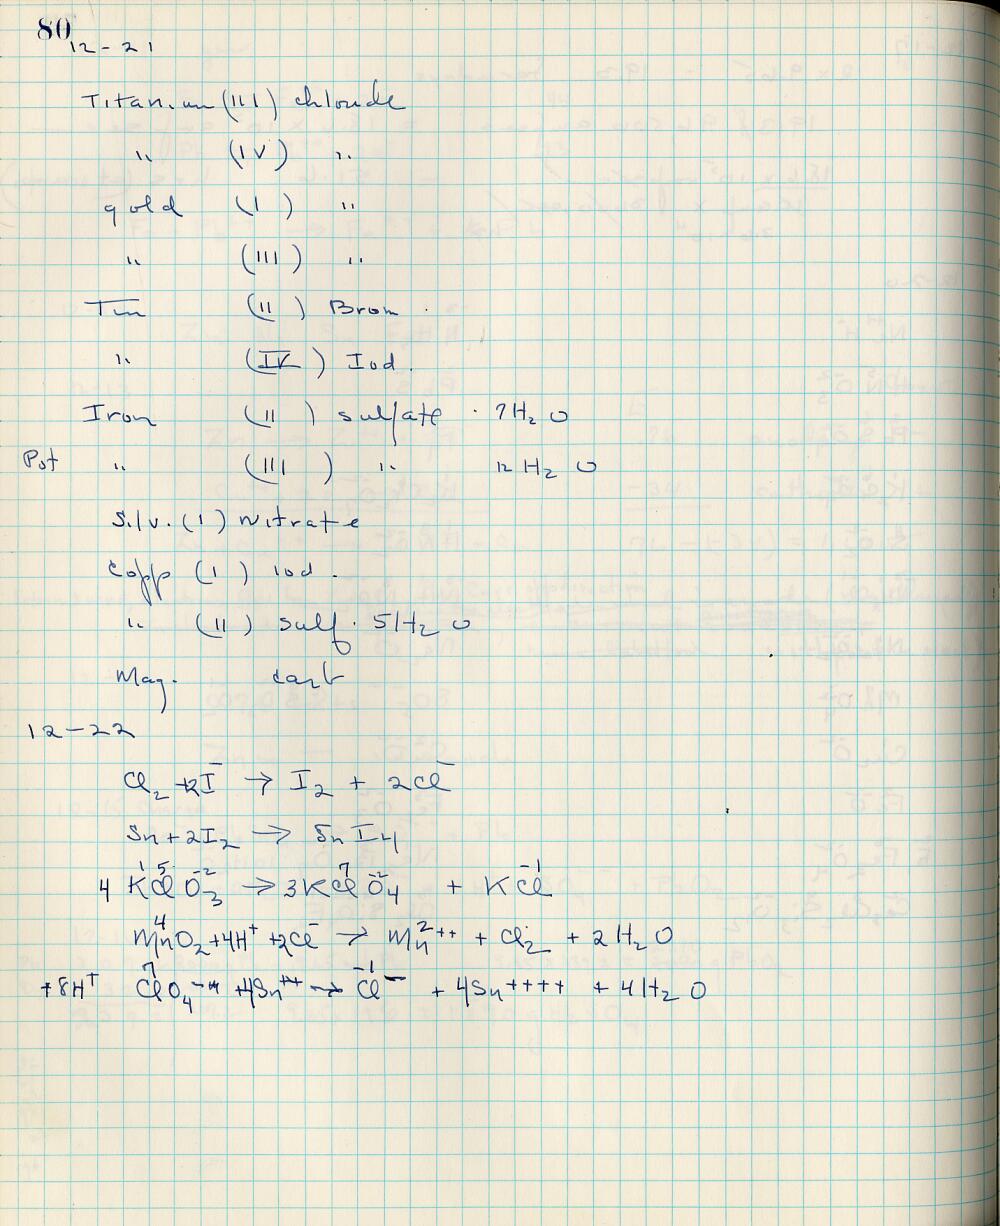 80
12-21
Titanium (III) chloride
" (IV) "
gold (I) "
" (III) "
Tin (II) Brom.
" (IV) Iod.
Iron (II) sulfate · 7H₂O
Pot " (III) " 12 H₂O
Silv. (I) nitrate
Copp (I) iod.
" (II) sulf. 5H₂O
Mag. carb
12-22
Cl₂ + 2I⁻ → I₂ + 2Cl⁻
Sn + 2I₂ → SnI₄
4 K¹Cl⁵O₃⁻² → 3KCl⁷O₄⁻² + KCl⁻¹
Mn⁴O₂ + 4H⁺ + 2Cl⁻ → Mn²⁺⁺ + Cl₂ + 2H₂O
+8H⁺ Cl⁷O₄⁻ + 4Sn⁺⁺ → Cl⁻¹⁻ + 4Sn⁺⁺⁺⁺ + 4H₂O